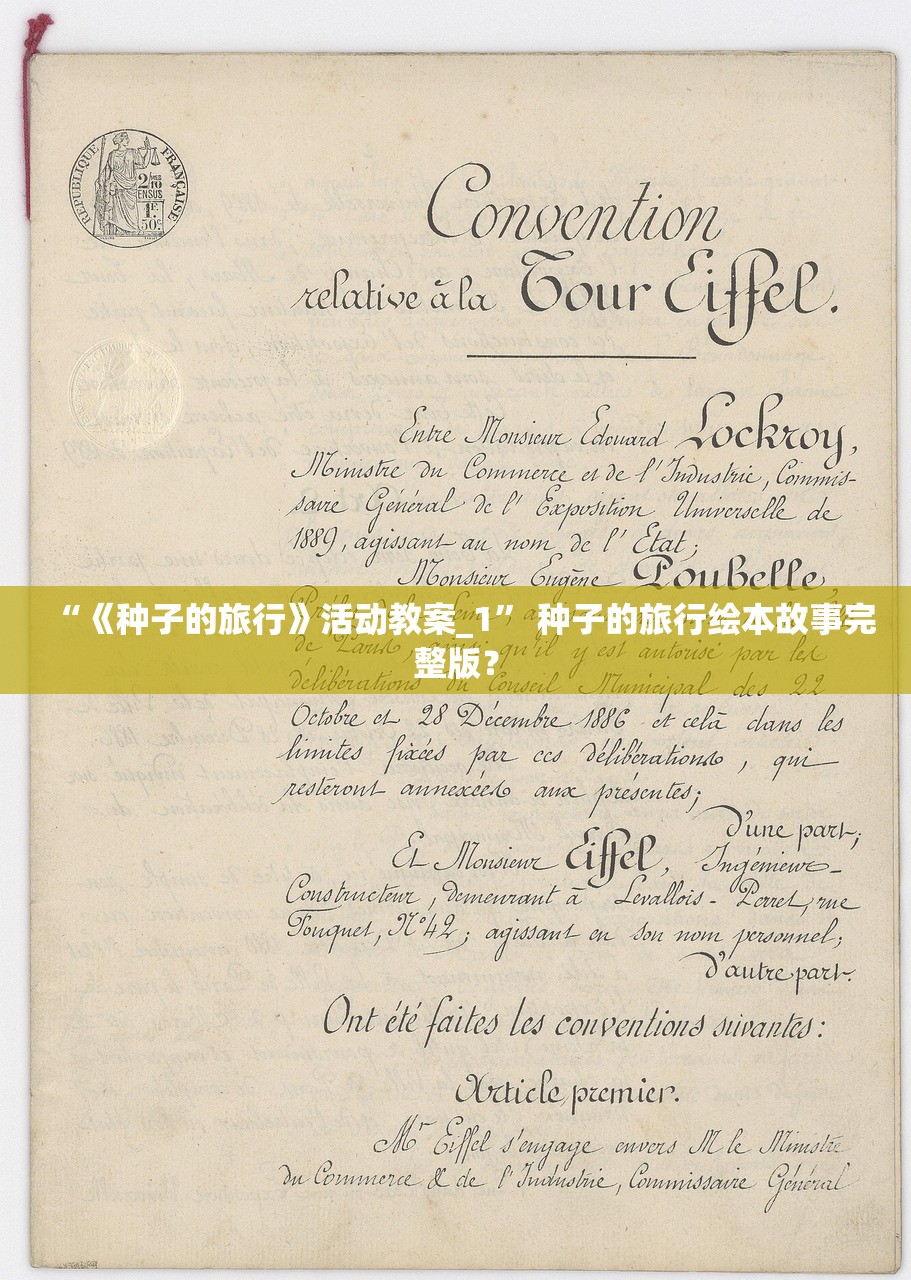 RÉPUBLIQUE FRANÇAISE
2/10
EN SUS
1F.
50c
Convention
relative à la Tour Eiffel.
Entre Monsieur Edouard Lockroy,
Ministre du Commerce et de l'Industrie, Commis-
saire Général de l'Exposition Universelle de
1889, agissant au nom de l'Etat;
Monsieur Eugène Poubelle,
“《种子的旅行》活动教案_1” 种子的旅行绘本故事完
整版?
de Paris, ainsi qu'il y est autorisé par les
délibérations du Conseil Municipal des 22
Octobre et 28 Décembre 1886 et celà dans les
limites fixées par ces délibérations, qui
resteront annexées aux présentes;
d'une part;
Et Monsieur Eiffel, Ingénieur-
Constructeur, demeurant à Levallois-Perret, rue
Fouquet, N° 42; agissant en son nom personnel;
d'autre part.
Ont été faites les conventions suivantes:
Article premier.
Mr Eiffel s'engage envers M le Ministre
du Commerce & de l'Industrie, Commissaire Général